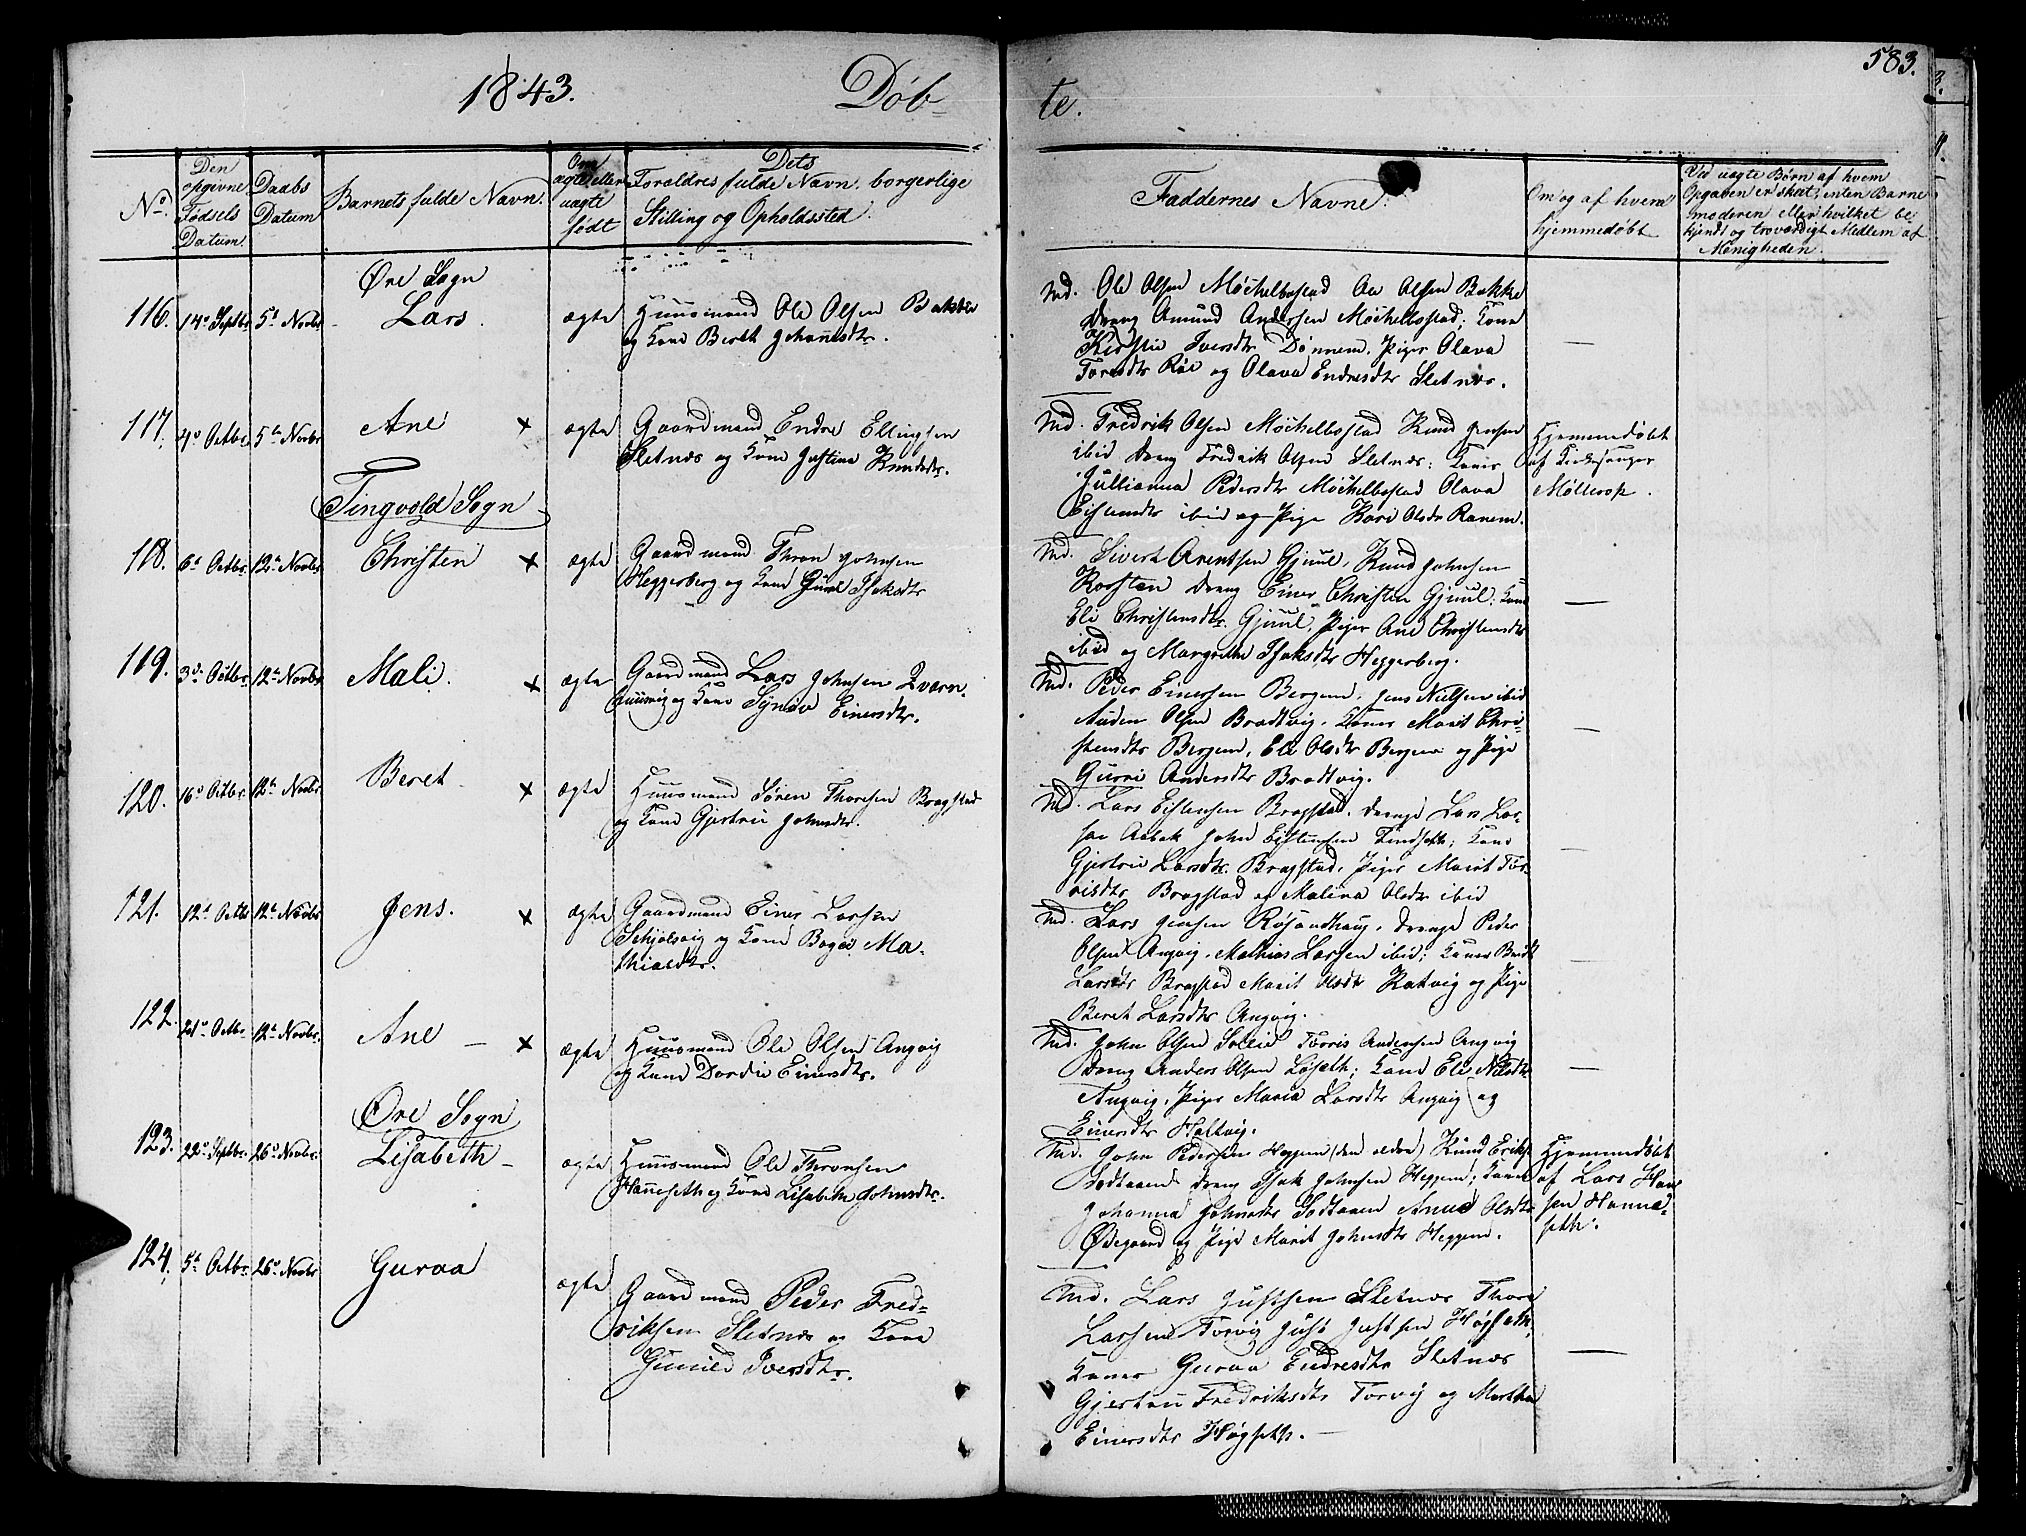 583.
1843. Døb-
te.
No.
Den
opgivne
Fødsels
Datum.
Daabs
Datum
Barnets fulde Navn.
Om
ægte eller
uægte
født
Dets
Foraldres fulde Navn. borgerlige
Stilling og Opholdssted.
Faddernes Navne.
Om og af hvem
hjemmedøbt
Ved uægte Børn af hvem
Opgaven er skeet; enten Barne
moderen eller hvilket be-
kjendt og troværdigt Medlem af
Menigheden.
Øre Sogn
116. 14de Septbr 5te Novbr. Lars. ægte Huusmand Ole Olsen Bakke
og Kone Bereth Johannesdtr.
Md. Ole Olsen Møchelbostad Ole Olsen Bakke
Dreng Amund Andersen Møchelbostad; Kone
Kirstie Iversdtr Dønnem. Piger Olava
Toresdtr Røe og Olava Endresdtr Sletnæs.
—
117. 4de Octbr. 5te Novbr Ane × ægte Gaardmand Endre Ellingsen
Sletnæs og Kone Justina Knudsdtr.
Md. Fredrik Olsen Møchelbostad Knud Jensen
ibid Dreng Fredrik Olsen Sletnæs; Koner
Jullianna Pedersdtr Møchelbostad Olava
Eistensdtr ibid og Pige Kari Olsdr Ranem.
Hjemmedøbt
af Kirkesanger
Møllerop.
Tingvold Sogn
118. 6te Octbr. 12te Novbr Christen × ægte Gaardmand Thron Johnsen
Heggerberg og Kone Gunil Isaksdtr
Md. Sivert Arentsen Gjuul, Knud Johnsen
Korsten Dreng Einer Christen Gjuul; Kone
Eli Christensdtr. Gjuul, Piger Ane Christensdtr
ibid og Margrethe Isaksdtr Heggerberg.
—
119. 3de Octbr. 12te Novbr Mali. × ægte Gaardmand Lars Johnsen Qværn-
huusvig og Kone Synøv Einersdtr.
Md. Peder Einersen Bergem, Jens Nielsen ibid
Auden Olsen Bradtvig. Koner Marit Chri-
stensdtr Bergem, Eli Olsdtr Bergem og Pige
Gurri Andersdtr Bradtvig.
—
120. 16de Octbr. 12te Novbr Beret × ægte Huusmand Søren Thoresen Bragstad
og Kone Gjertrue Johnsdtr.
Md. Lars Eistensen Bragstad, Drenge Lars Lar-
sen Aabak John Eistensen Tindseth; Kone
Gjertrue Larsdtr. Bragstad, Piger Marit Tor-
risdtr Bragstad og Malina Olsdtr ibid
—
121. 12te Octbr 12te Novbr Jens. × ægte Gaardmand Einer Larsen
Schjølsvig og Kone Baga Ma-
thiasdtr.
Md. Lars Jensen Røsandhaug, Drenge Peder
Olsen Angvig, Mathias Larsen ibid; Koner Beret
Larsdtr Bragstad Marit Olsdtr Katvig og Pige
Beret Larsdtr Angvig.
—
122. 21de Octbr. 12te Novbr. Ane — × ægte Huusmand Ole Olsen Angvig
og Kone Dordie Einersdtr.
Md. John Olsen Sollie Torris Andersen Angvig
Dreng Anders Olsen Løseth; Kone Eli Nilsdtr
Angvig, Piger Maria Larsdtr Angvig og
Einersdtr Holtvig.
—
Øre Sogn
123. 22de Septbr. 26de Novbr. Lisabeth — ægte Huusmand Ole Thronsen
Hanneseth og Kone Lisabeth Johnsdtr.
Md. John Pedersen Heggem (den ældre) Knud Eriks
Sodtaaen Dreng Isak Johnsen Heggem; Koner
Johanna Johnsdtr Sodtaaen Anne Olsdtr
Ødegaard og Pige Marit Johnsdtr Heggem.
Hjemmedøbt
af Lars Han-
sen Hanne-
seth.
124. 5te Octbr 26de Novbr Guraa ægte Gaardmand Peder Fred-
riksen Sletnæs og Kone
Gunild Iversdtr.
Md. Lars Justsen Sletnæs Thore
Larsen Torvig Just Justsen Høgseth,
Koner Guraa Endresdtr Sletnæs
Gjertrue Fredriksdtr Torvig og Martha
Einersdtr Høgseth. —
—